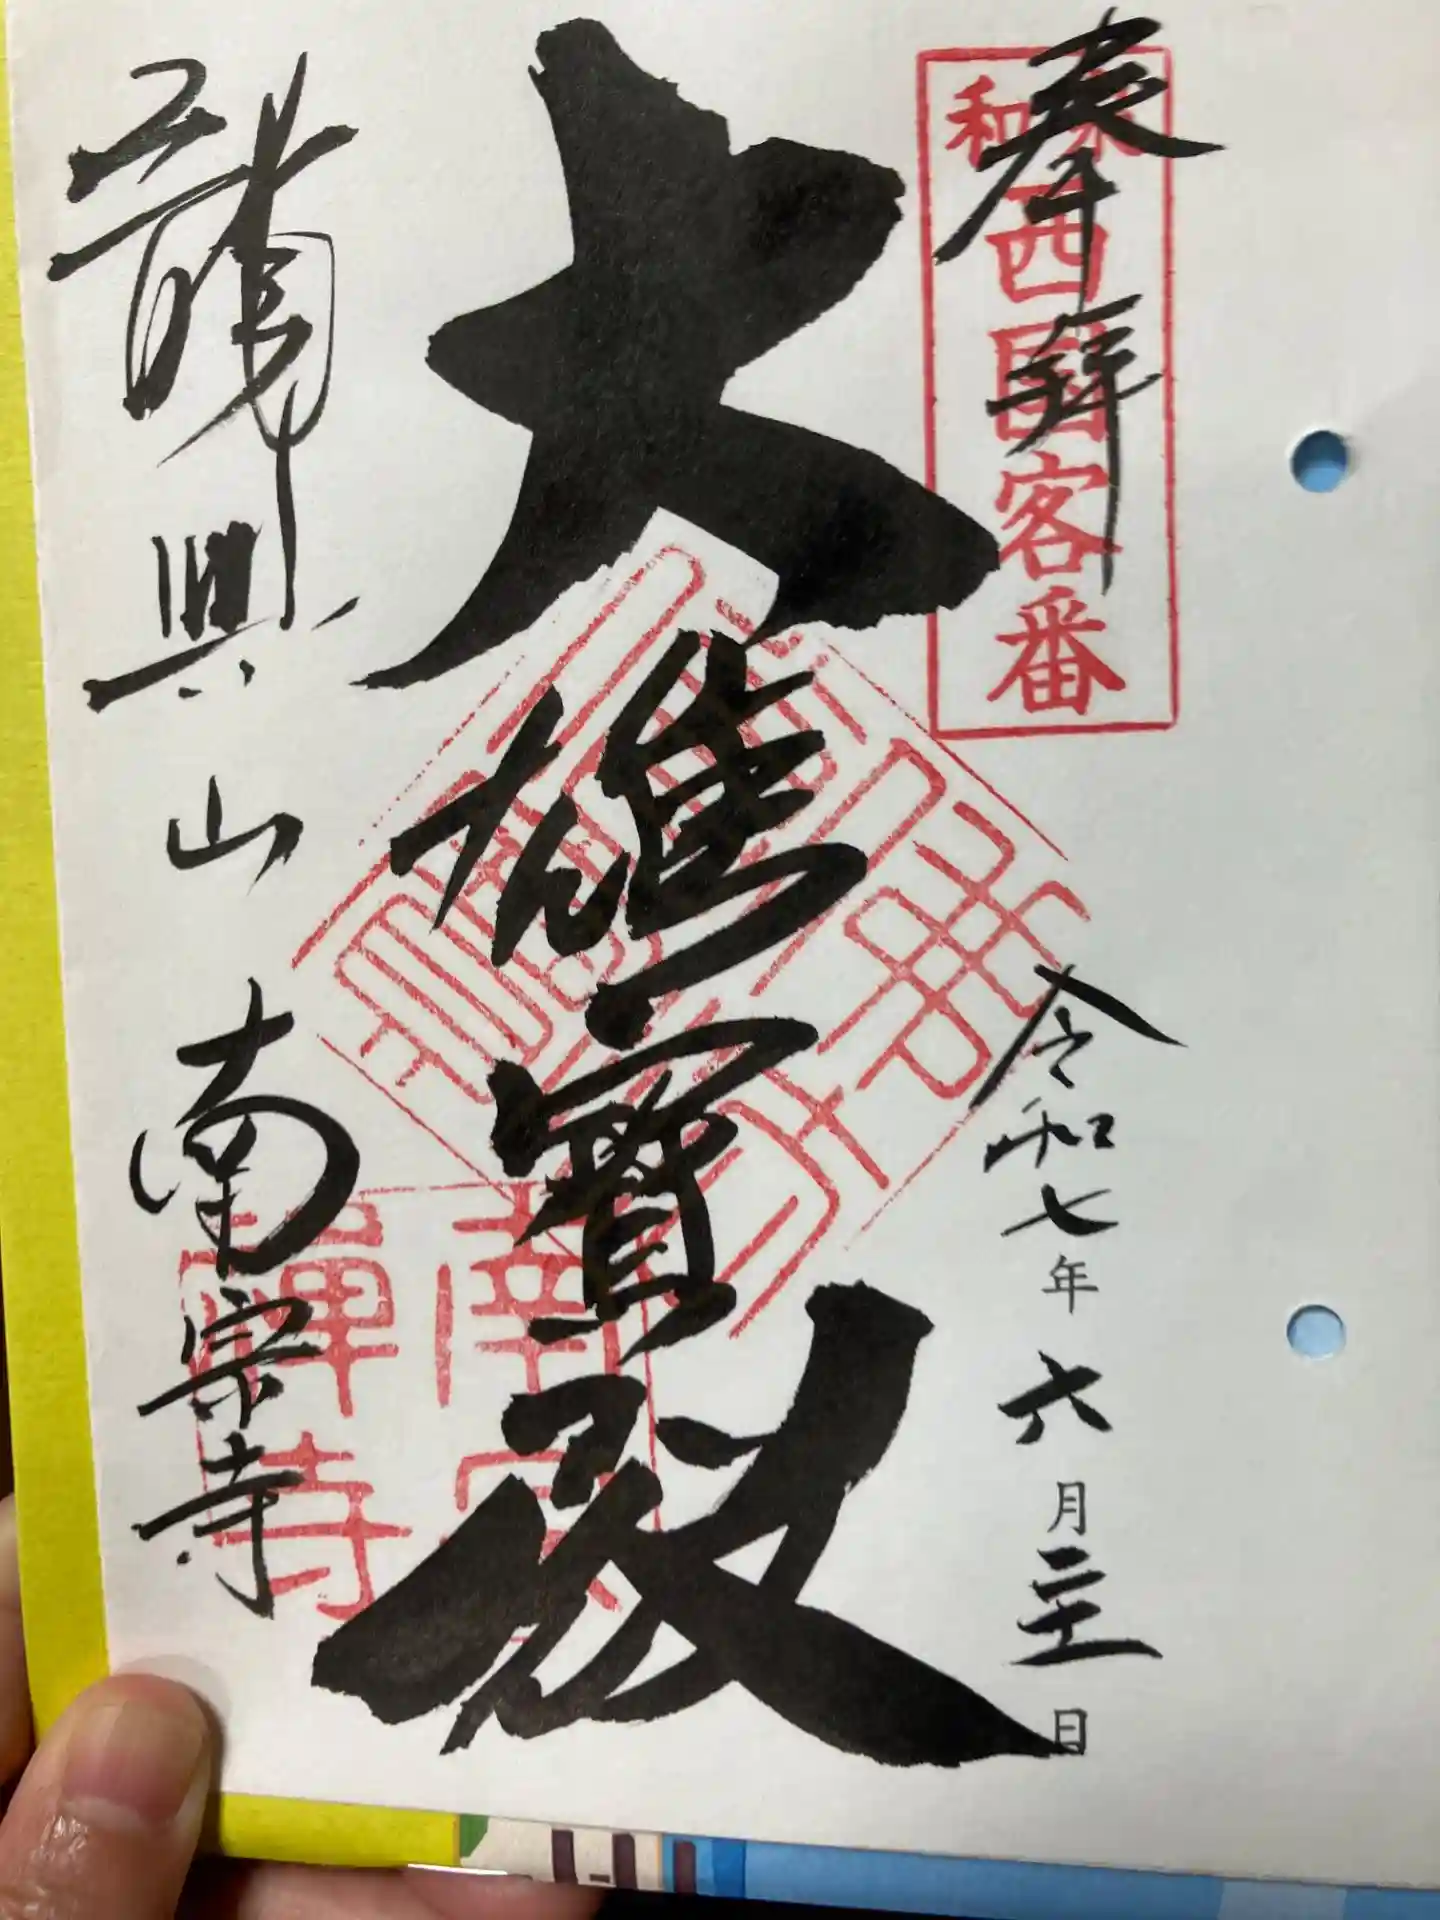 奉拜
和泉
西国客番
令和七年六月二十一日
大雄寶殿
龍興山 南宗寺
南宗禪寺